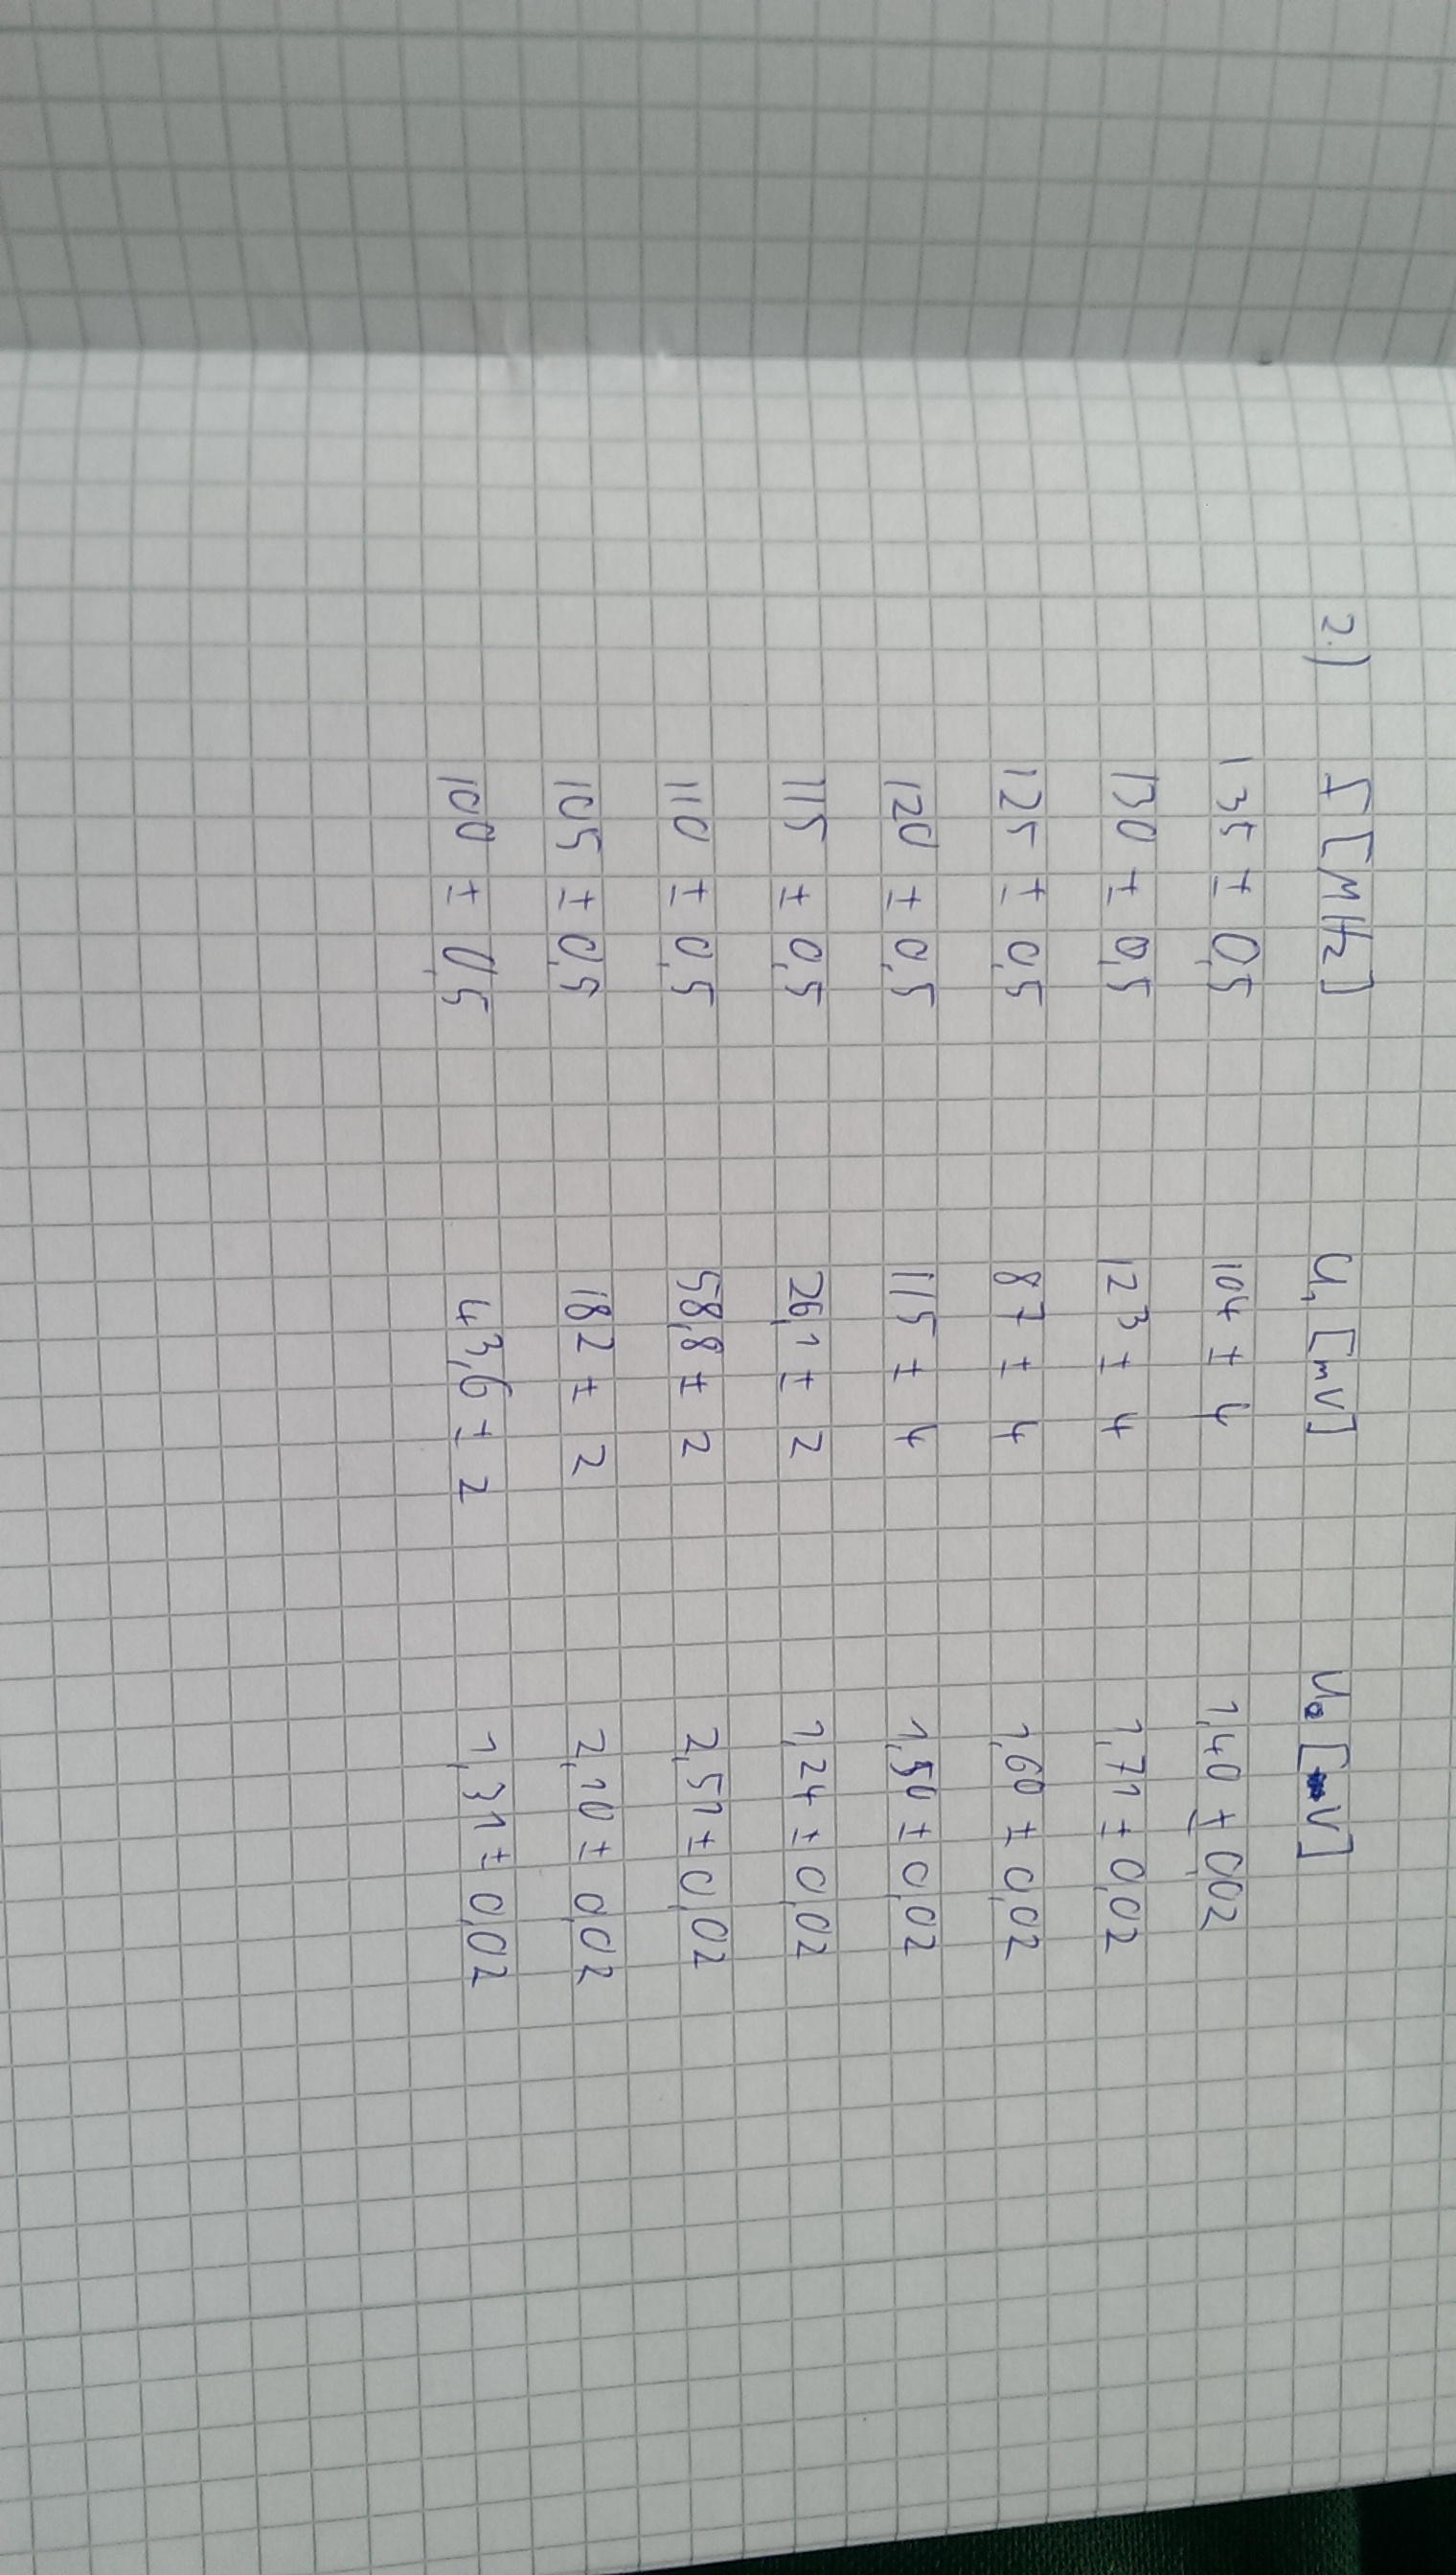 2.) f [MHz] U₁ [mV] U₀ [V]
135 ± 0,5 104 ± 4 1,40 ± 0,02
130 ± 0,5 123 ± 4 1,71 ± 0,02
125 ± 0,5 87 ± 4 1,60 ± 0,02
120 ± 0,5 115 ± 4 1,50 ± 0,02
115 ± 0,5 26,1 ± 2 1,24 ± 0,02
110 ± 0,5 58,8 ± 2 2,51 ± 0,02
105 ± 0,5 182 ± 2 2,10 ± 0,02
100 ± 0,5 43,6 ± 2 1,31 ± 0,02